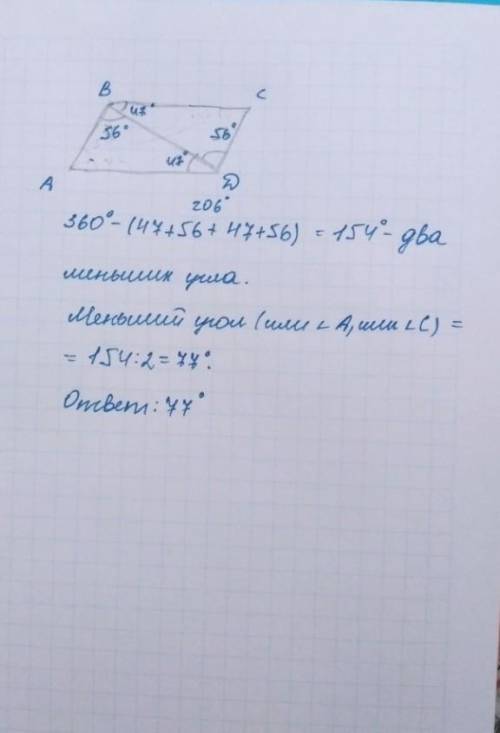 B C
47°
56° 56°
47°
A D
206°
360° - (47+56+47+56) = 154° - два
меньших угла.
Меньший угол (или ∠A, или ∠C) =
= 154:2 = 77°.
Ответ: 77°